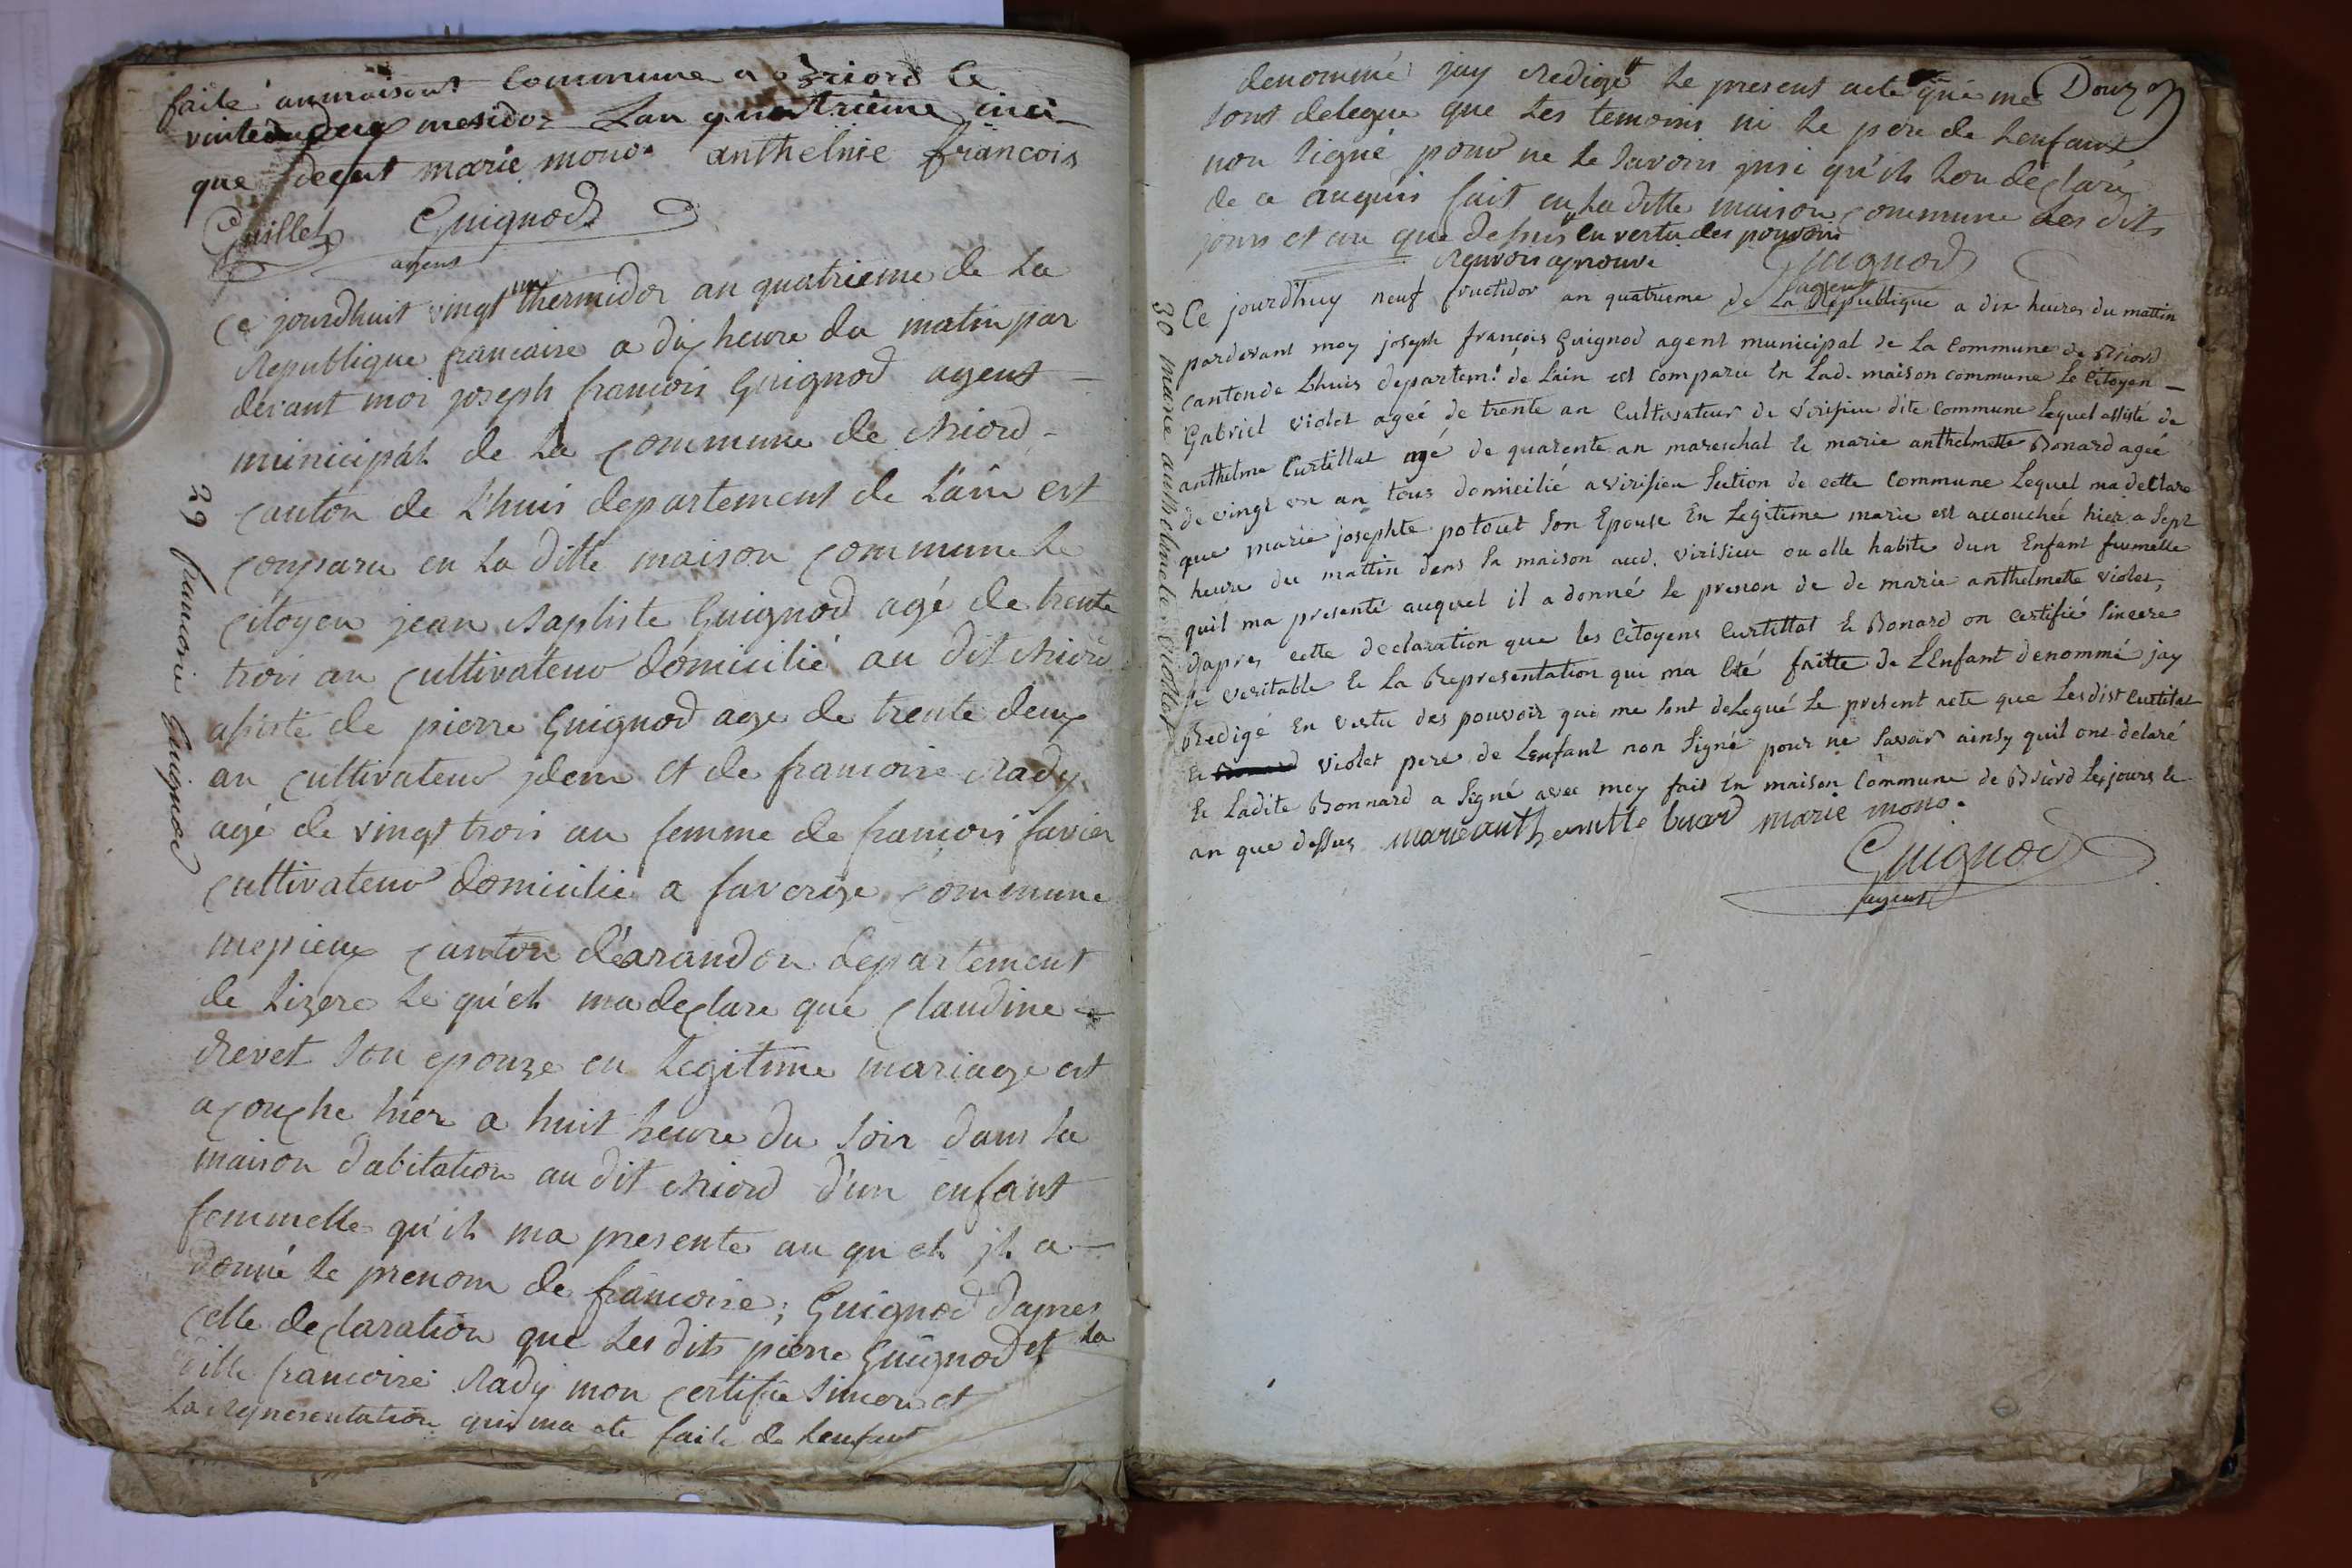 faite an maison Commune a Briord le
vinte deux mesidor Lan quatrième insi
que desus marie mono. anthelme francois
Guillet Guignod
agent
Ce jourdhuit vingt un thermidor an quatrieme de La
Republique francaise a dix heure du matin par
devant moi joseph francois Guignod agent
municipal de La Commune de Briord
canton de Lhuis departement de Lain est
comparu en La ditte maison commune Le
citoyen jean Baptiste Guignod agé de trente
trois an cultivateur domicilié au dit Briord
assisté de pierre Guignod age de trente deux
an cultivateur jdem et de francoise Rady
agé de vingt trois an femme de francois favier
cultivateur domicilie a faverge commune
mepieux canton d'arandon departement
de Lizere Le qu'el ma declare que Claudine
Revet Son epouze en Legitime mariage est
acouche hier a huit heure du Soir dans Sa
maison dabitation au dit Briord d'un enfant
femmelle qu'il ma presente au qu el jl a
donné le prenom de francoise ; Guignod dapres
cette declaration que Les dits pierre Guignod et la
ditte francoise Rady mon certifie Sincere et
La representation qui ma ete faite de Lenfant
29 francoise Guignod
denommé jay Redigé Le present acte que me Douzon
sont delegue que Les temoins ni Le pere de Lenfant
non Signé pour ne Le Savoir jnsi qu'ils Lon declaré
de ce anquis fait en La ditte maison commune Les dits
jours et an que dessus en vertu des pouvoirs
Renvois aprouvé Guignod
agent
30 marie anthelmete violet
Ce jourd'huy neuf fructidor an quatrieme de La Republique a dix heures du mattin
pardevant moy joseph françois Guignod agent municipal de La Commune de Briord
canton de Lhuis departem.t de Lain est Comparu En Lad. maison commune Le Citoyen
Gabriel violet ageé de trente an Cultivateur de virisieu dite Commune Lequel assisté de
anthelme Curtillat agé de quarente an mareschal Et marie anthelmette Bonard ageé
de vingt un an tous domicilié a virisieu Section de cette Commune Lequel ma declare
que marie josephte potout Son Epouse En Legitime marie est accoucheé hier a Sept
heure du mattin dans Sa maison aud. virisieu ou elle habite dun Enfant fumelle
quil ma presenté auquel il a donné Le prenon de de marie anthelmette violet,
dapres cette declaration que les Citoyens Curtillat Et Bonard on certifié Sincere
Et veritable Et La Representation qui ma Eté faitte de LEnfant denommé jay
Redigé En vertu des pouvoir qui me Sont deLegué Le present acte que Lesdist Curtilat
Et Bonnard violet pere de Lenfant non Signé pour ne Savoir ainsy quil ont delaré
Et Ladite Bonnard a Signé avec moy fait En maison Commune de Briord Les jours Et
an que dessus marie anthermette bnard marie mono.
Guignod
agent